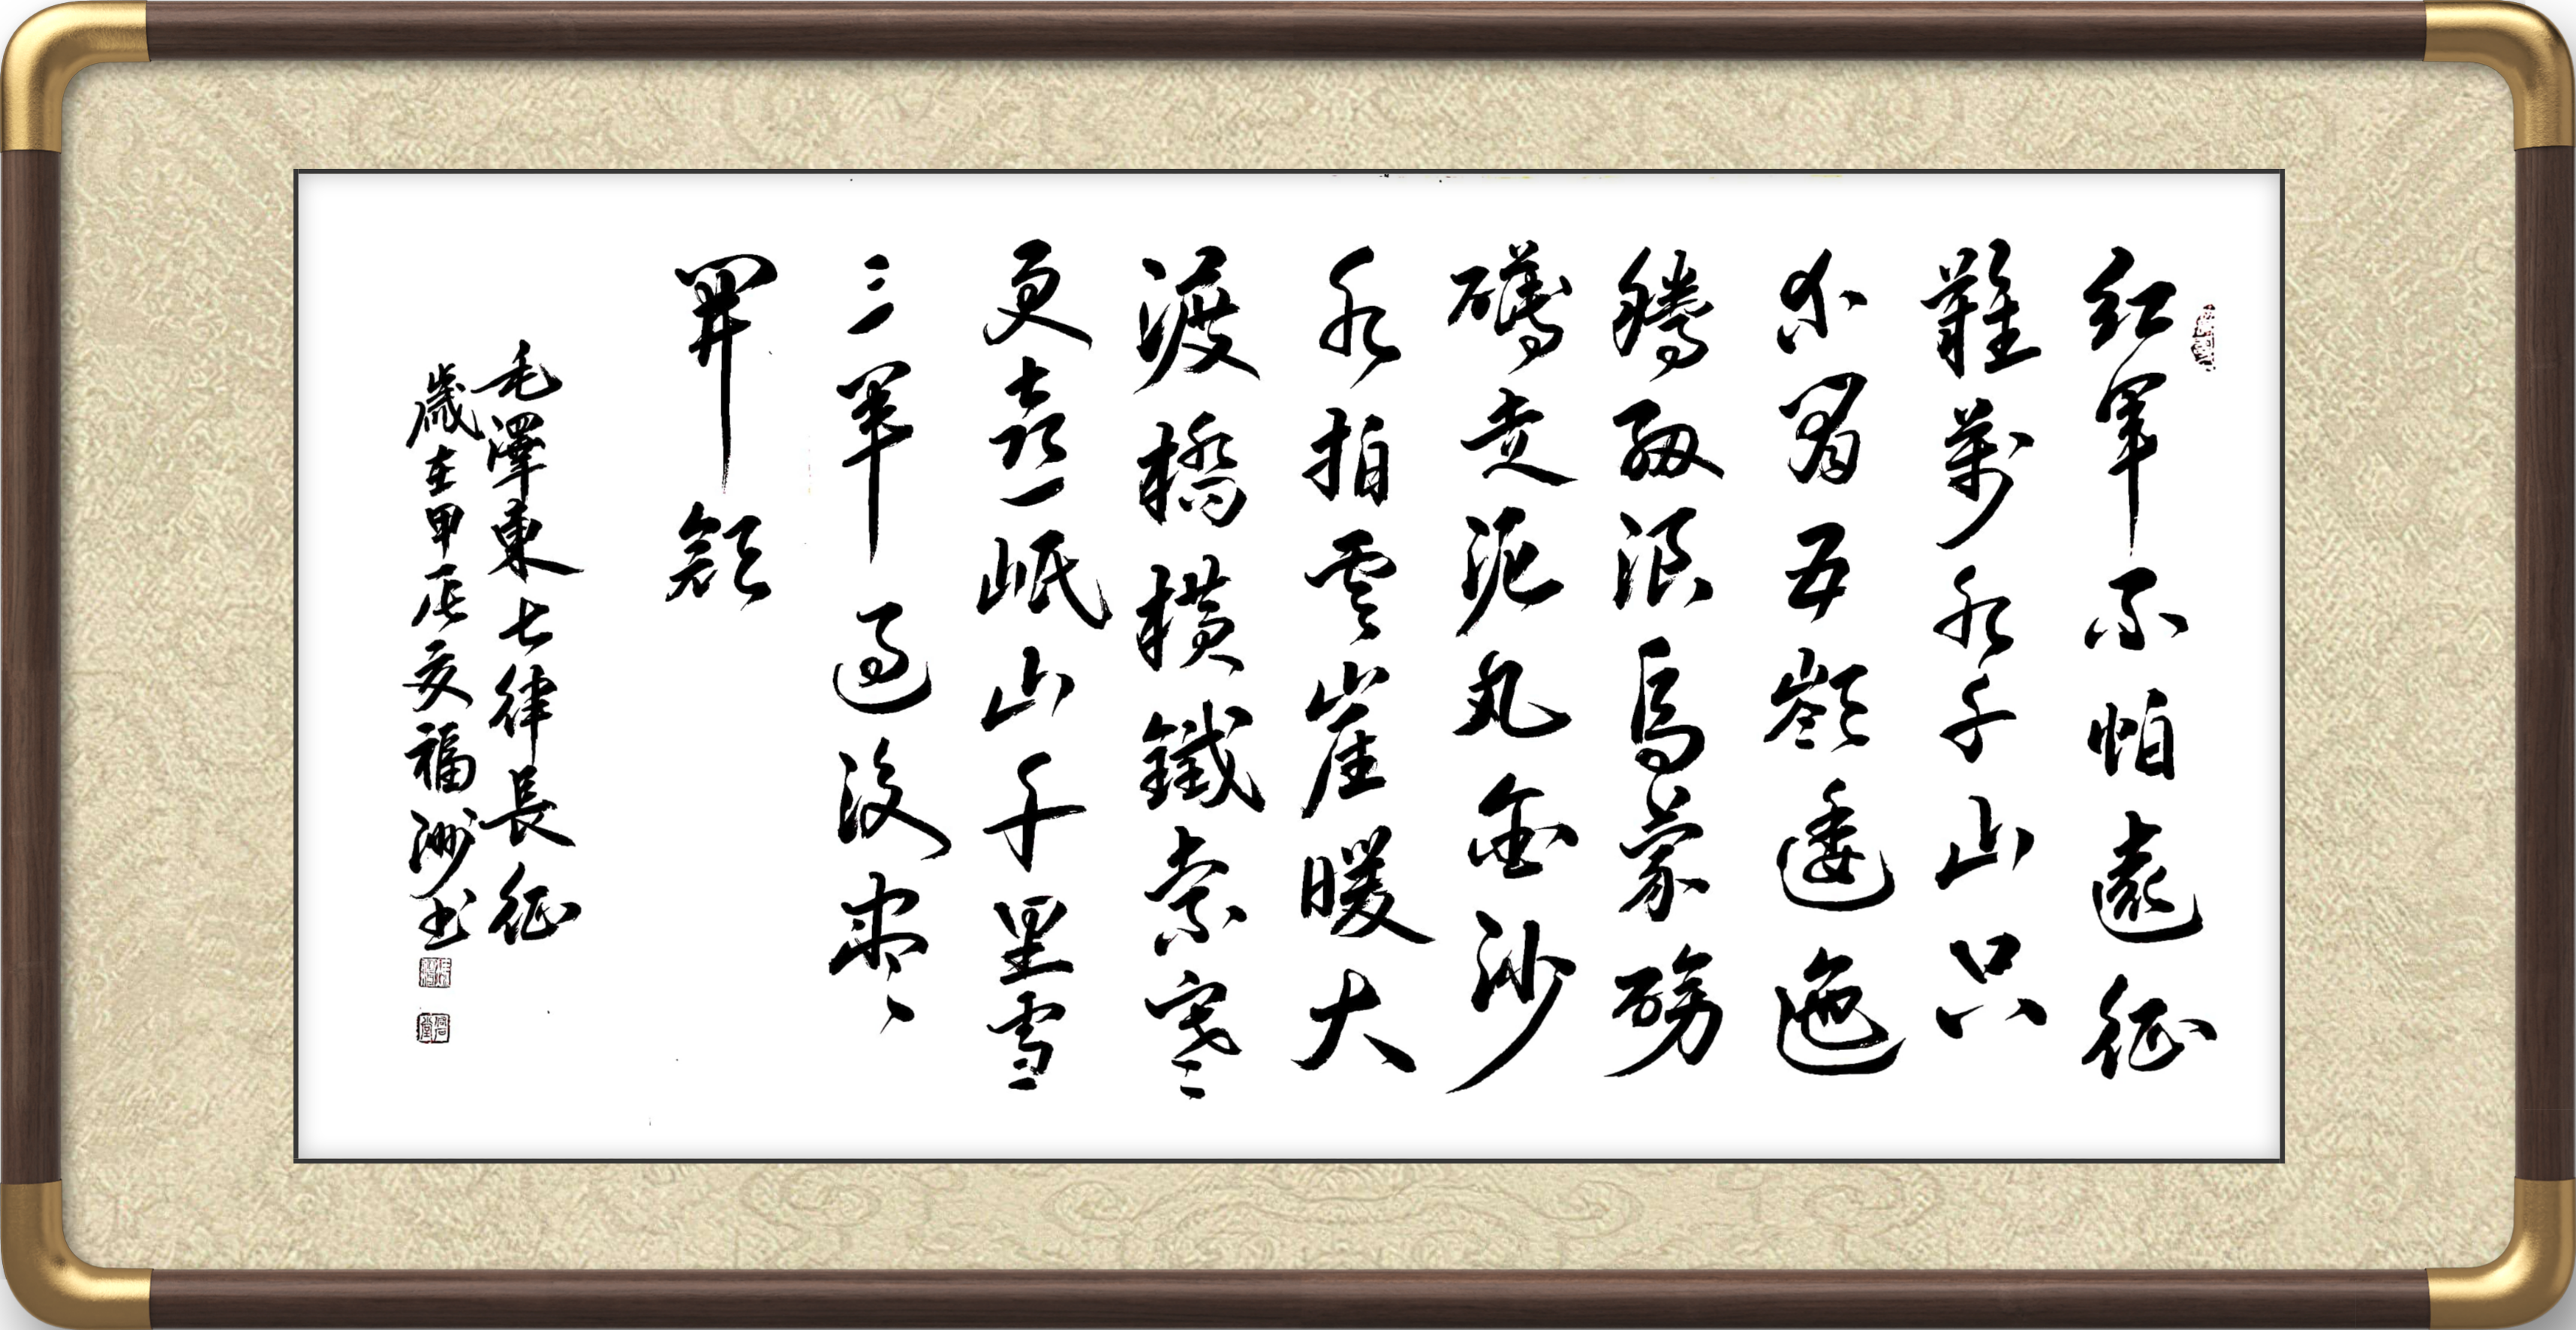 紅軍不怕遠征
難萬水千山只
等閒五嶺逶迤
騰細浪烏蒙磅
礴走泥丸金沙
水拍雲崖暖大
渡橋橫鐵索寒
更喜岷山千里雪
三軍過後盡
開顏
毛澤東七律長征
歲在甲辰夏福洲书